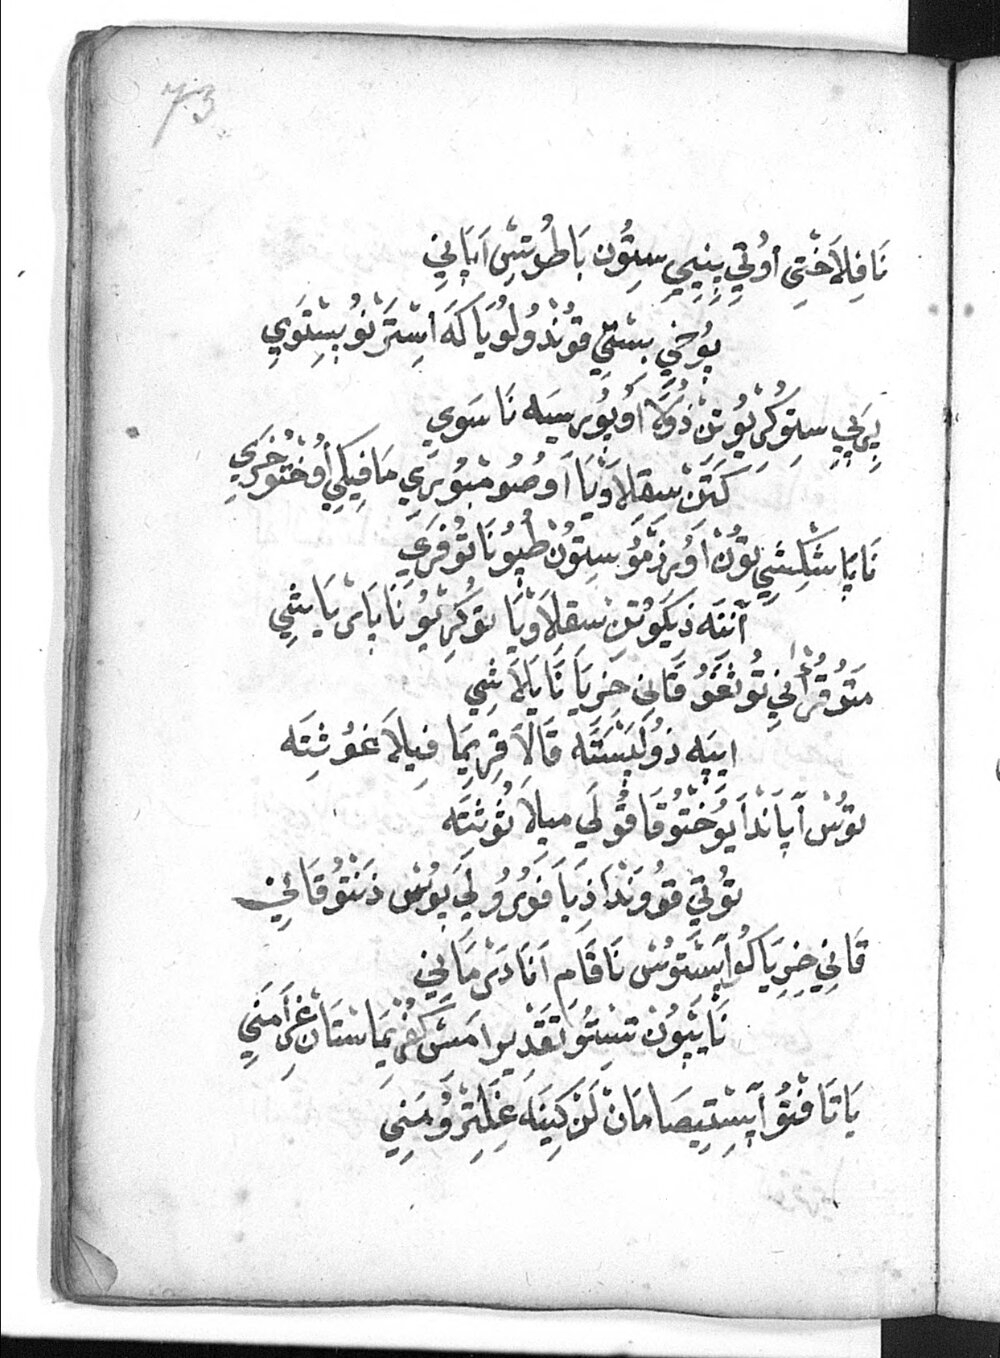 73
نَا فِلاَخْتِى اُوتِي پِنِيمِي سِتُونْ بَاطُوتِسْ اَپَانِي
پُوخِي بِسْتِي قوُنْدُولُويَا كَهَ اسْتَرْنوُ بِسْتَوِي
پِرَپِي سِتَوكُرْيُوتِنْ ذُوَلَا اَوپُورِسِيه نَا سَوِي
كَتَنْ سِقلاَوْيَا اَوصُومْبُورِي مَا فِيكِي اُوخْتُوخَرِي
نَا پَا شَكِشِي تؤُنْ اَوُرِزَمَوُ سِتُونْ طُپوُ نَا تُوفَرَيِ
آنتَه ذِيكَوُتِنْ سِقلاَوْيَا تؤكِرِيُو نَا پَارْ يَايشِي
مَتوُقُرْأنِي تُونْغَوُ قَانِي خِرِيَا نَا يَالَاشِي
اِيپَه ذوُلَپْسَتَه قَالَا قِرِيمَا فِيلَا غوُثِتَه
تؤُسْ آپَانْدَا يوُخْتوُقَا قوُلَي مِيلَا تُوثِتَه
تؤُتِي قوُوَنْدَا ذِيَا فَوُرُولَي پوُسْ ذَنْتوُقَائِي
قَانِي خِرِيَا كُو اَپِسْتَوُسْ نَا قَامِ اَنَا دَرْمَانِي
نَا پِيُونْ تِسْتوُ تَقْدِيرْ اَمَسْ كِخْرِيمَاسْتَانْ غِرَامَنِي
يَا تَا فَنْتوُ آپِسْتِيصَامَانْ لَنْ كِينَه غِلِتْرَوُمَنِي